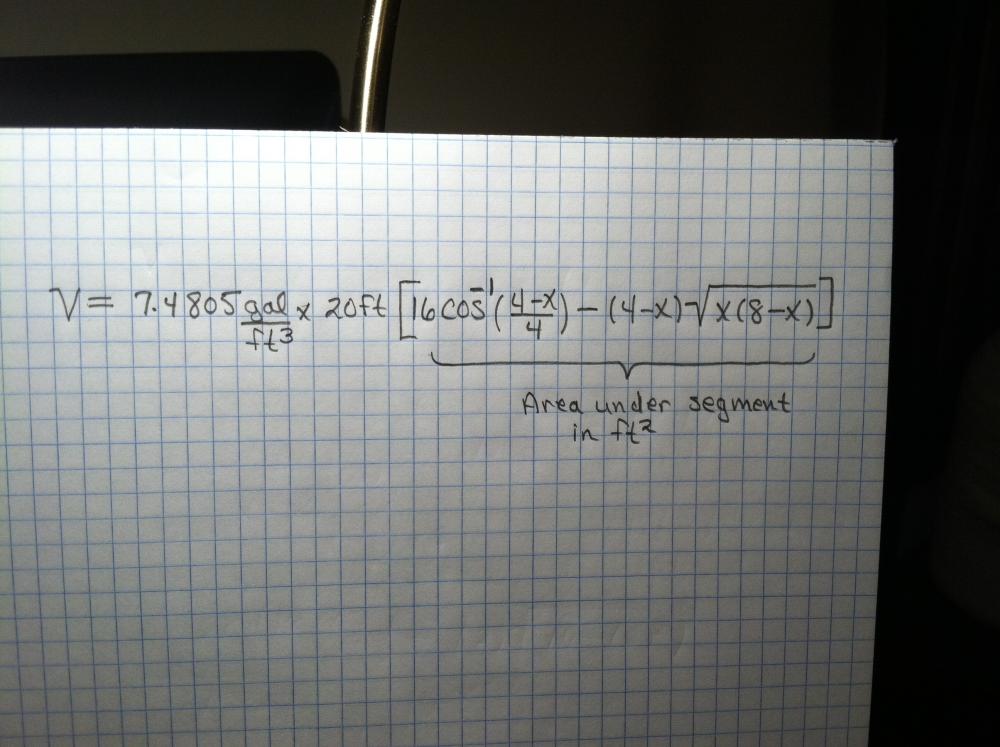 V = 7.4805 gal/ft³ x 20ft [16 cos⁻¹((4-x)/4) - (4-x)√(x(8-x))]
Area under segment
in ft²